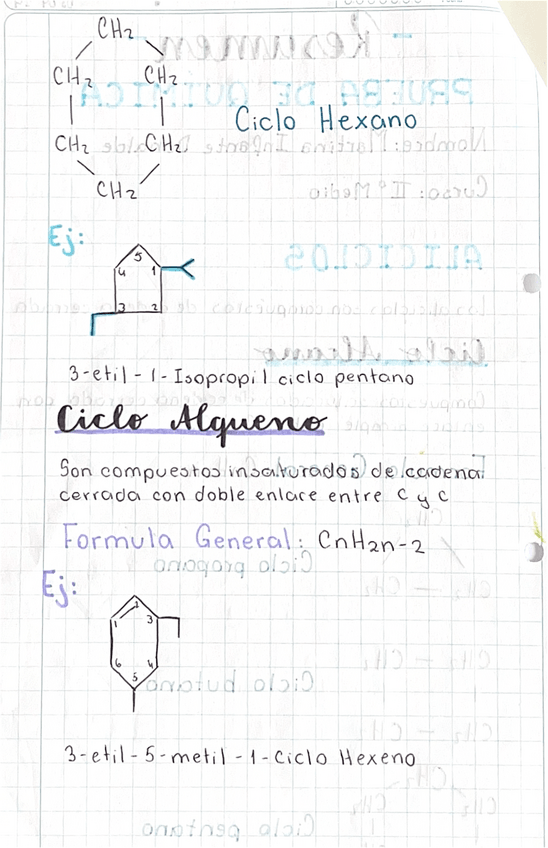 CH2
CH2 CH2
CH2 CH2
CH2
Ciclo Hexano
Ej:
5
4 1
3 2
3-etil-1-Isopropil ciclo pentano
Ciclo Alqueno
Son compuestos insaturados de cadena
cerrada con doble enlace entre C y C
Formula General: CnH2n-2
Ej:
2
1 3
6 4
5
3-etil-5-metil-1-Ciclo Hexeno